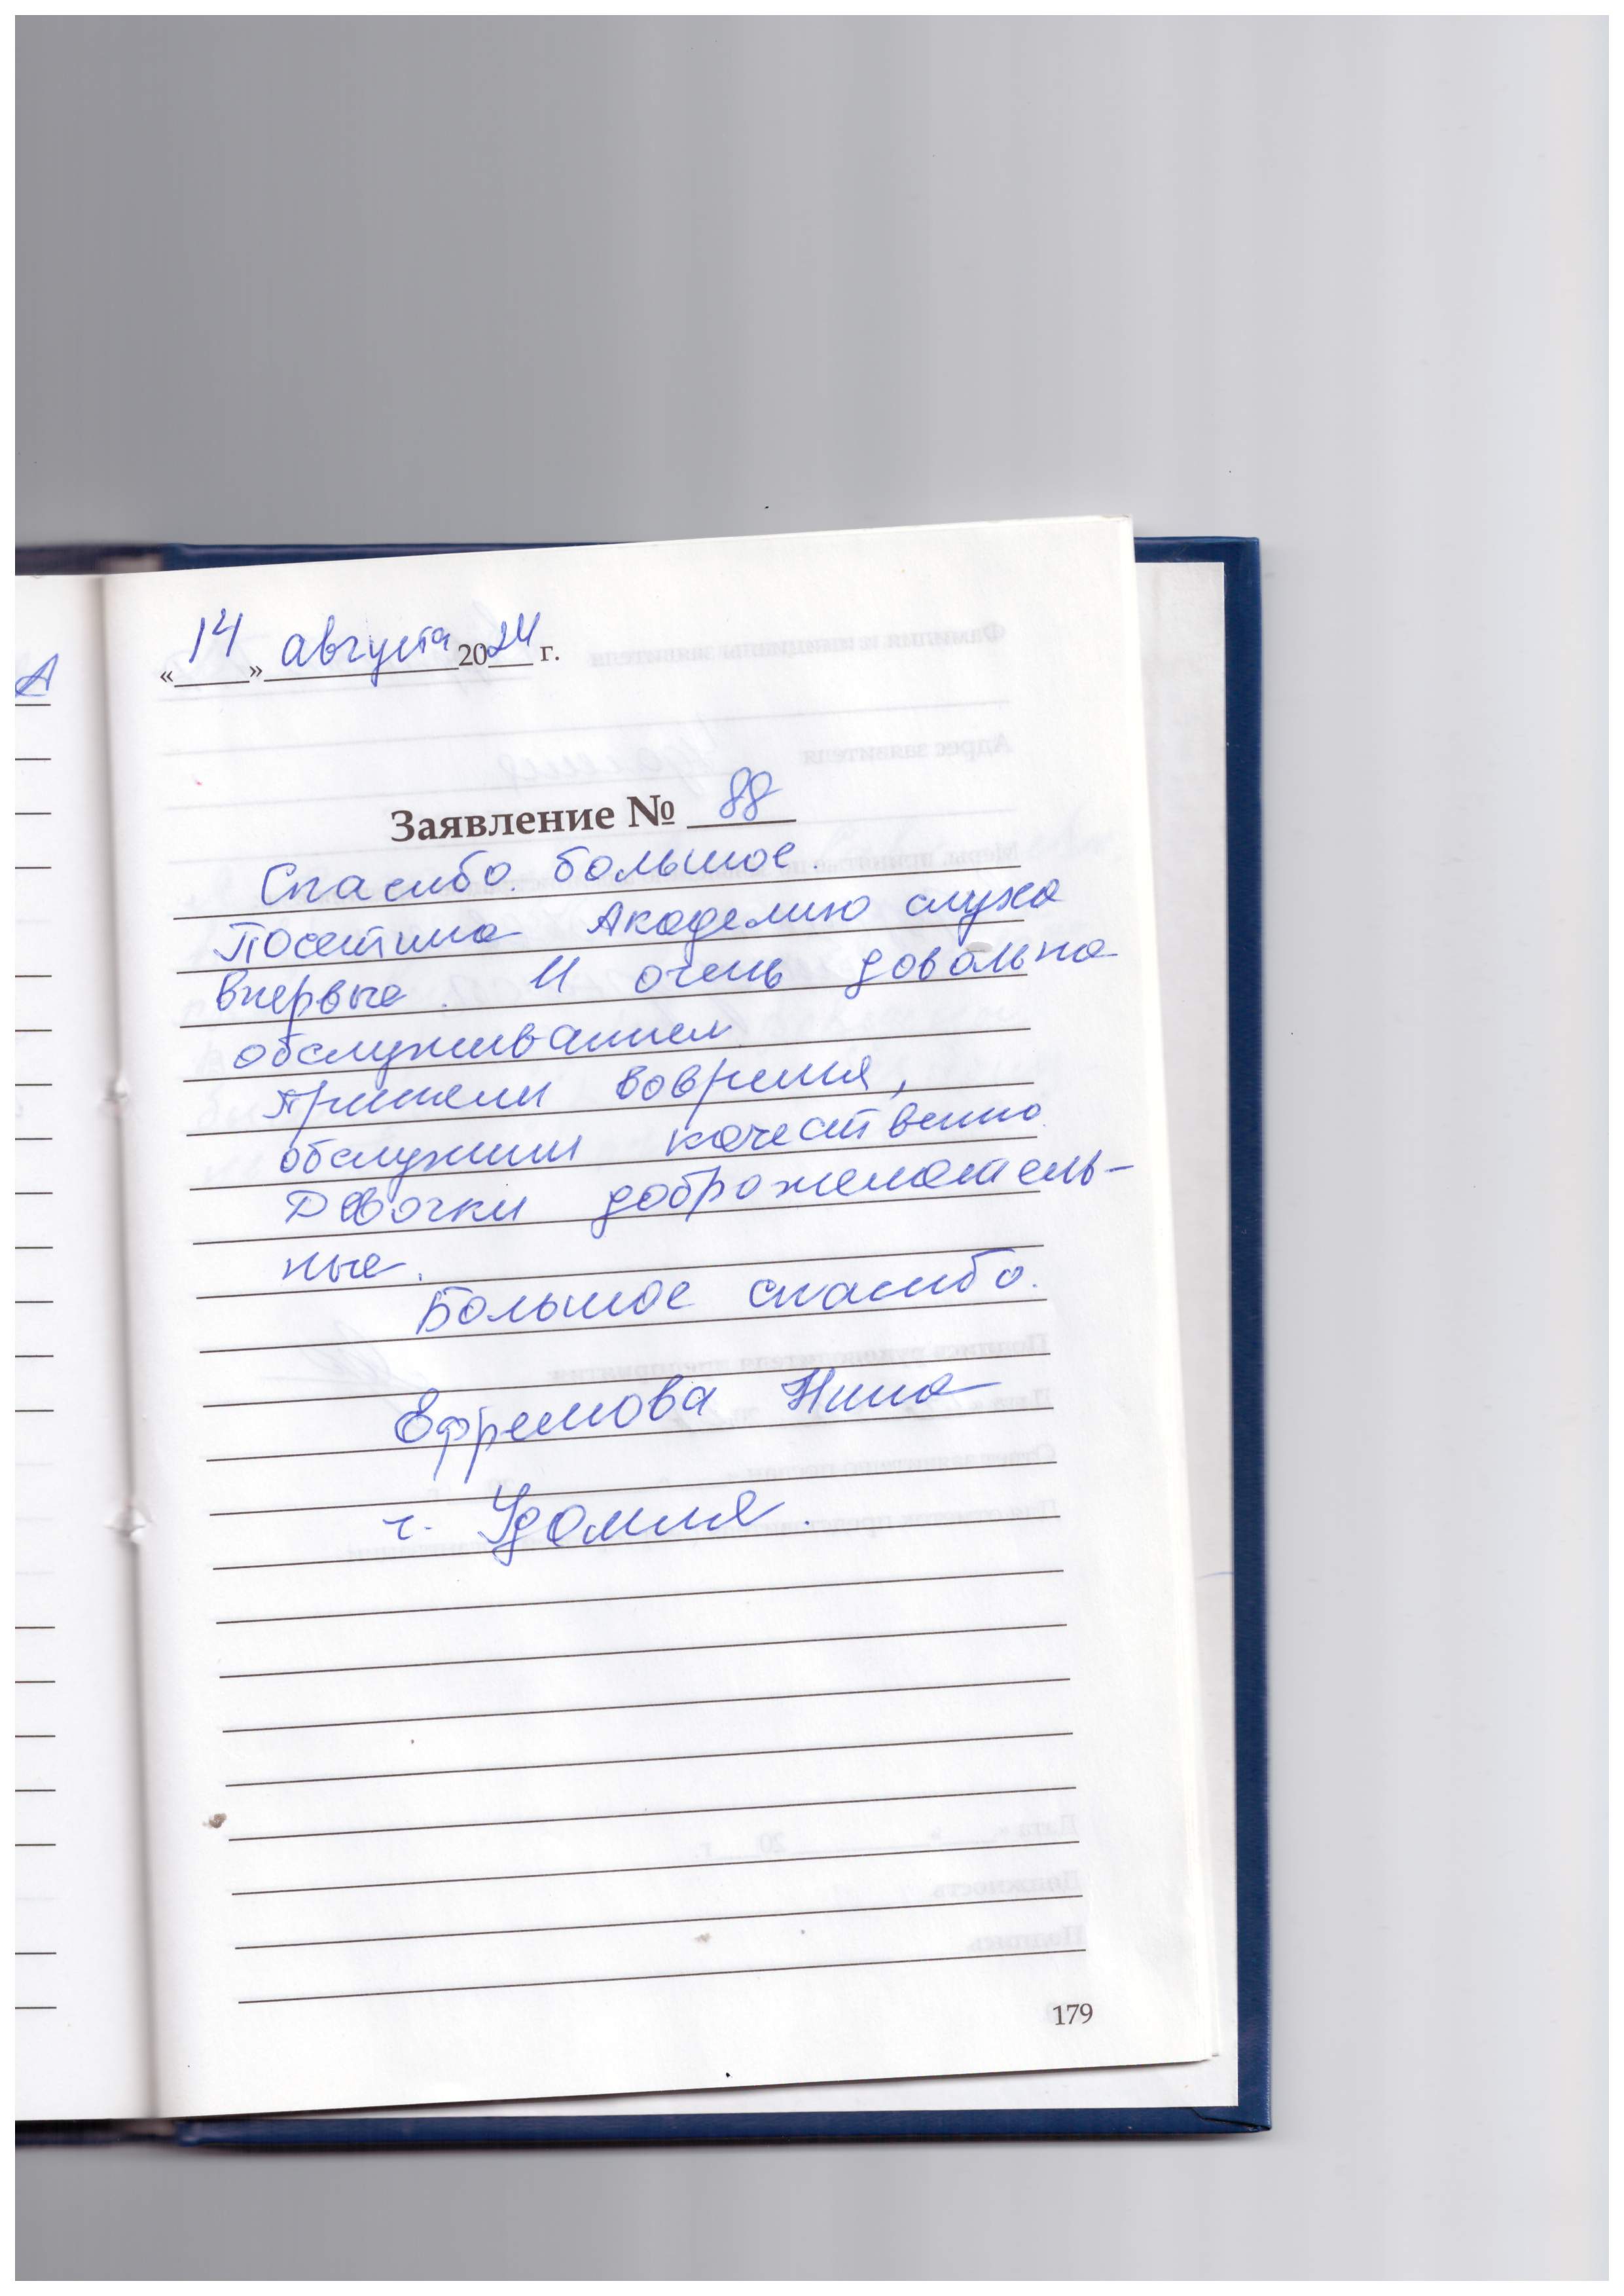 «14» августа 2024 г.
Заявление № 88
Спасибо большое.
Посетила Академию слуха
впервые. И очень довольна
обслуживанием
приняли вовремя,
обслужили качественно.
Девочки доброжелатель-
ные.
Большое спасибо.
Ефремова Нина
г. Удомля.
179